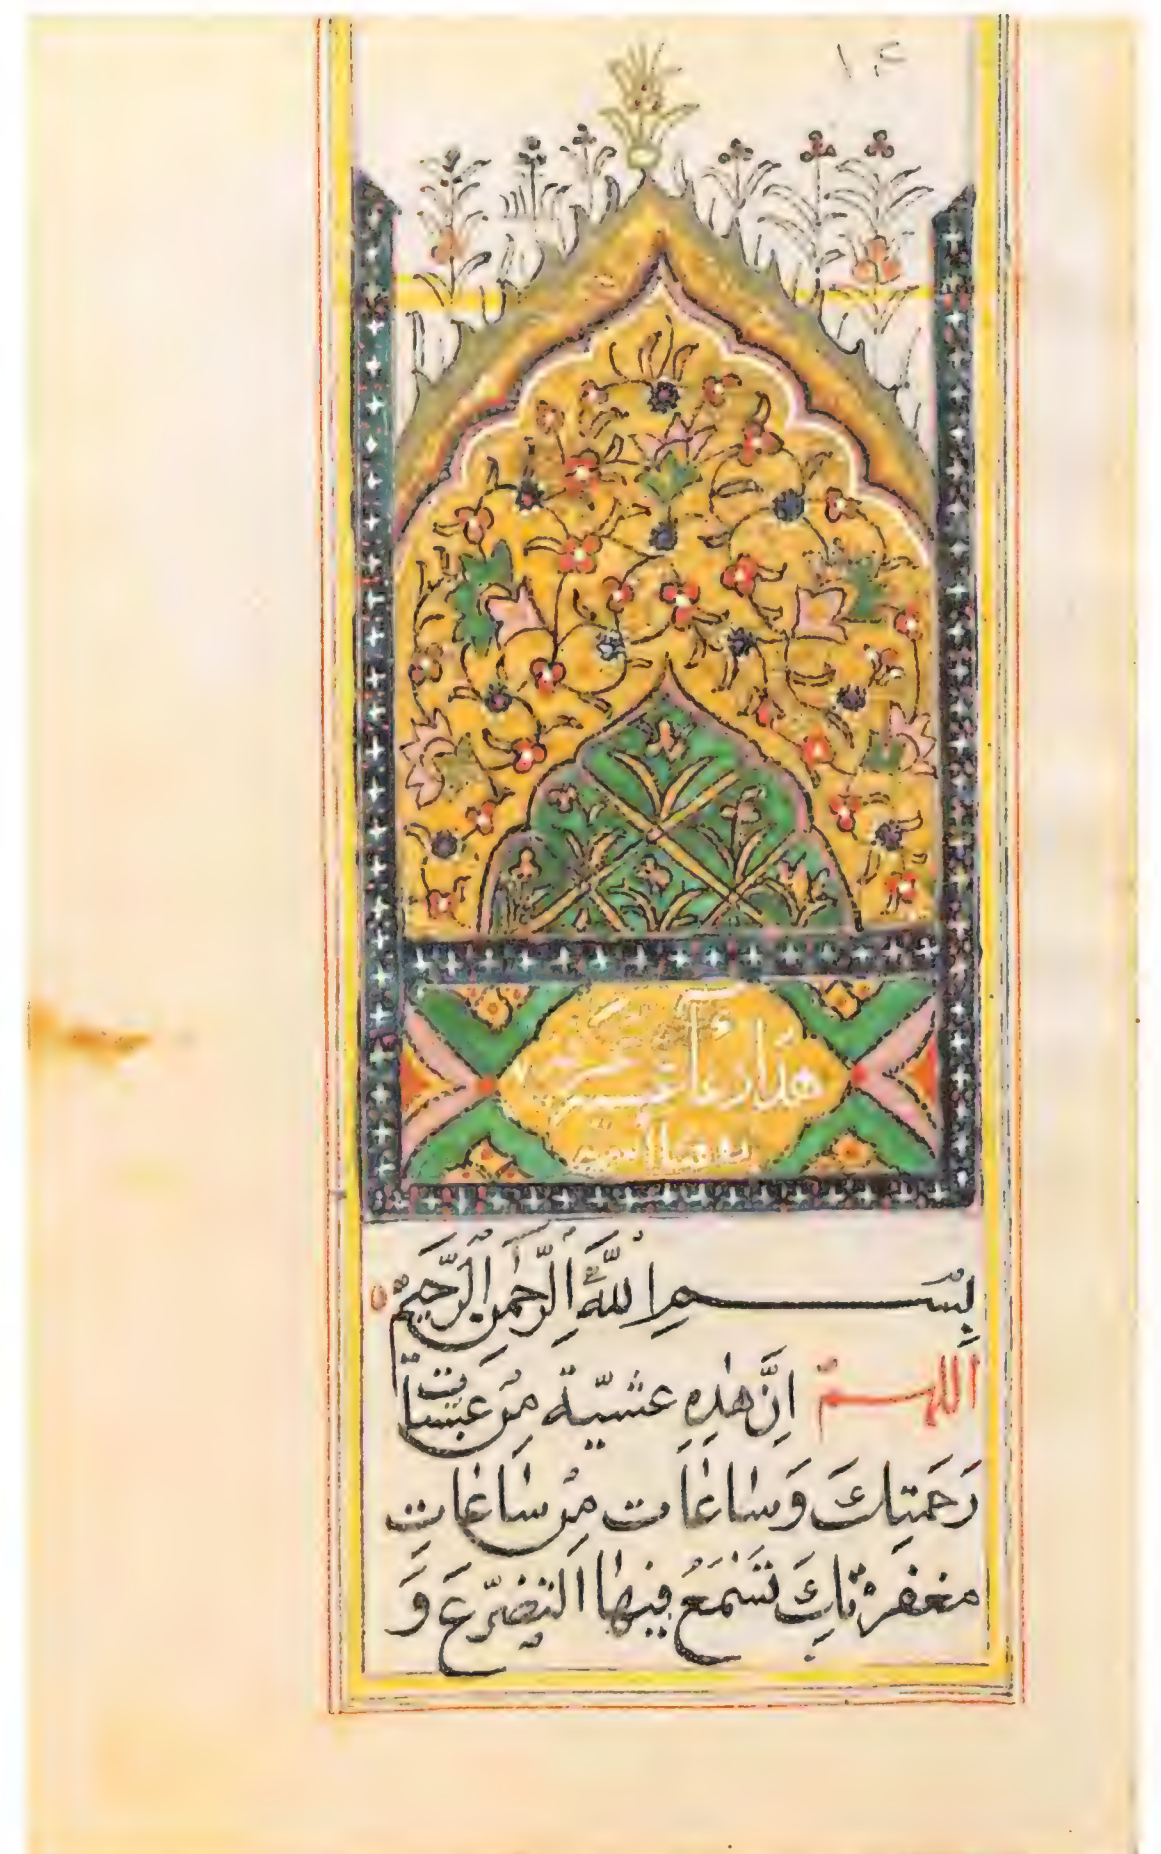 ١٤
هذا دعاء عشية
بِسْمِ اللَّهِ الرَّحْمٰنِ الرَّحِيمِ
اللهم اِنَّ هٰذِهِ عشيّة مِن عَشيات
رَحمَتِكَ وَسٰاعٰات مِن سٰاعٰاتِ
مغفرتِكَ تَسْمَعُ فيهٰا التَضرّعَ وَ